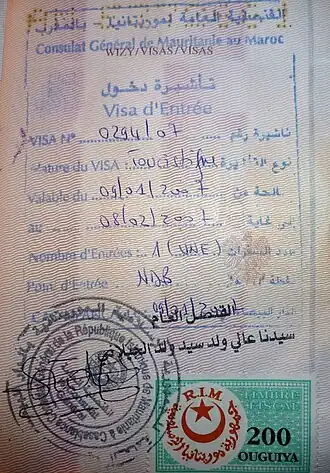 القنصلية العامة لموريتانيا - بالمغرب
Consulat Général de Mauritanie au Maroc
WIZY/VISAS/VISAS
تأشيرة دخول
Visa d'Entrée
VISA N° 0294/07 تأشيرة رقم
Nature du VISA Touristique نوع التأشيرة
Valable du 09/01/2007 صالحة من
au 08/02/2007 إلى غاية
Nombre d'Entrées 1 (UNE) عدد السفرات
Point d'Entrée NDB
القنصل العام
سيدنا عالي ولد سيد ولد الجيلاني
Consulat Général de la République Islamique de Mauritanie à Casablanca
R.I.M.
TIMBRE FISCAL
200
OUGUIYA